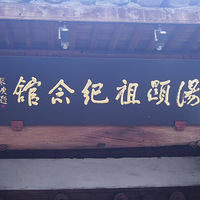 湯顯祖纪念館